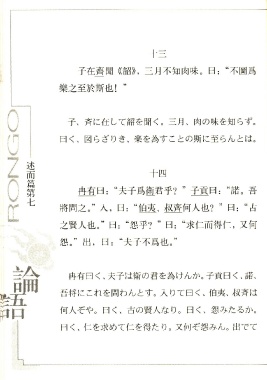 十三
子在齊聞《韶》，三月不知肉味。曰：“不圖爲
樂之至於斯也！”
子、斉に在して韶を聞く。三月、肉の味を知らず。
曰く、図らざりき、楽を為すことの斯に至らんとは。
十四
冉有曰：“夫子爲衛君乎？”子貢曰：“諾。吾
將問之。”入，曰：“伯夷、叔斉何人也？”曰：“古
之賢人也。”曰：“怨乎？”曰：“求仁而得仁，又何
怨。”出，曰：“夫子不爲也。”
冉有曰く、夫子は衛の君を為けんか。子貢曰く、諾、
吾将にこれを問わんとす。入りて曰く、伯夷、叔斉は
何人ぞや。曰く、古の賢人なり。曰く、怨みたるか。
曰く、仁を求めて仁を得たり。又何ぞ怨みん。出でて
RONGO
述而篇第七
論語